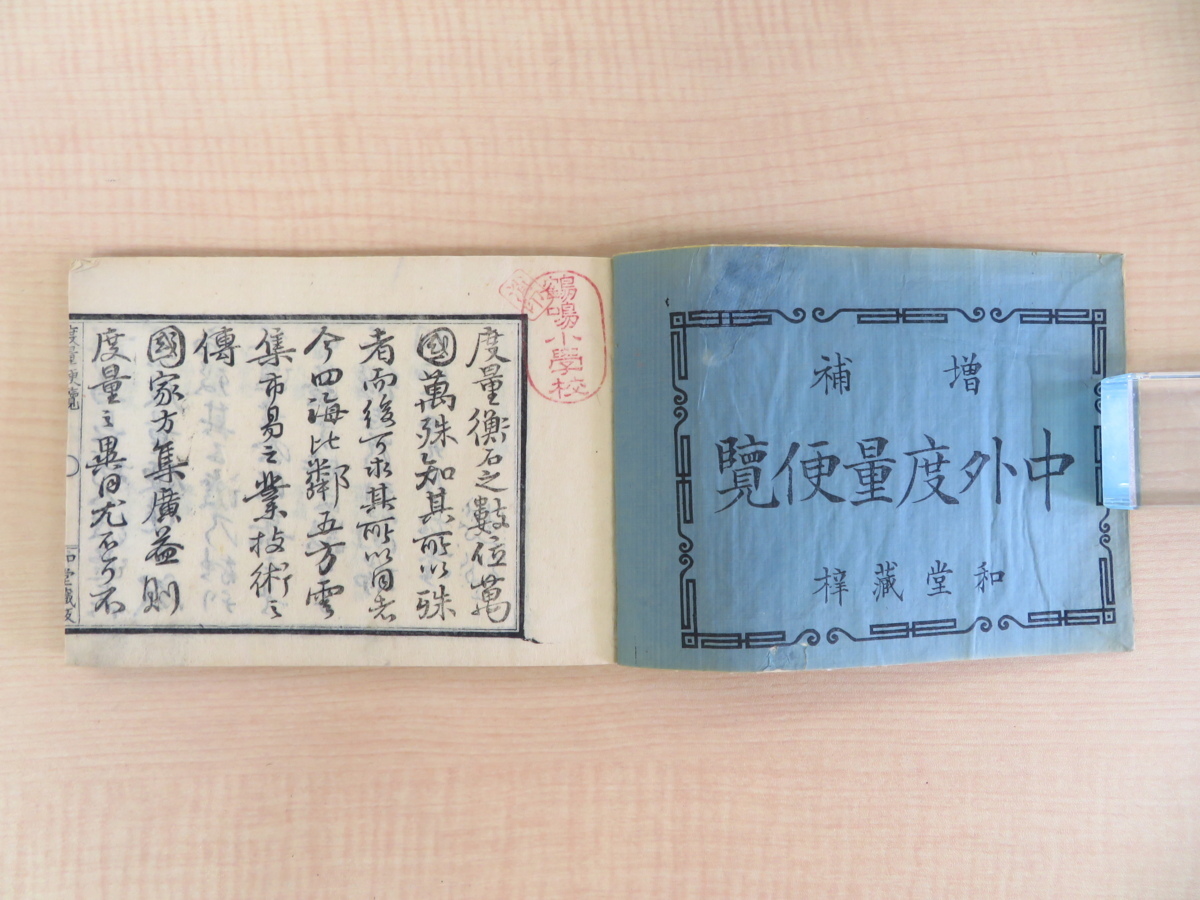 增補
中外度量便覽
和堂藏梓
鶴鳴小學校
度量衡石之數位萬
國萬殊知其所以殊
者而後可求其所以同者
今四海比鄰五方雲
集市易之業技術之
傳
國家方集廣益則
度量之異同尤不可不
度量便覽